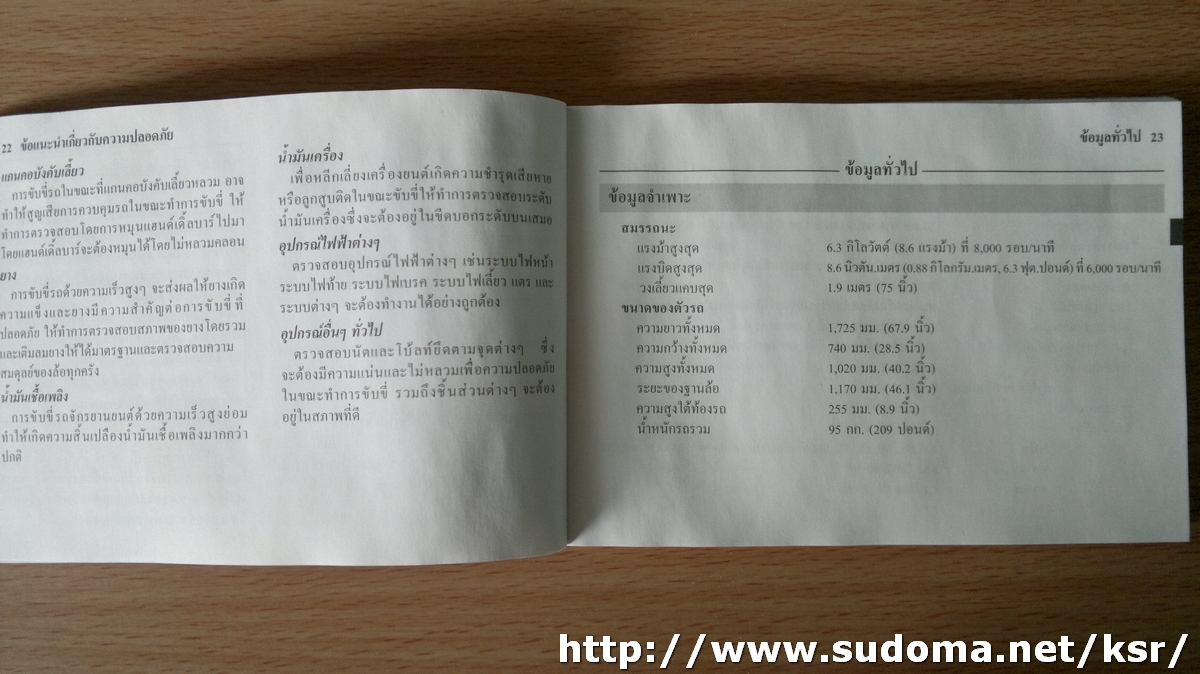 22 ข้อแนะนำเกี่ยวกับความปลอดภัย
แกนคอบังคับเลี้ยว
การขับขี่รถในขณะที่แกนคอบังคับเลี้ยวหลวม อาจ
ทำให้สูญเสียการควบคุมรถในขณะทำการขับขี่ ให้
ทำการตรวจสอบโดยการหมุนแฮนด์เดิ้ลบาร์ไปมา
โดยแฮนด์เดิ้ลบาร์จะต้องหมุนได้โดยไม่หลวมคลอน
ยาง
การขับขี่รถด้วยความเร็วสูงๆ จะส่งผลให้ยางเกิด
ความแข็งและยางมีความสำคัญต่อการขับขี่ที่
ปลอดภัย ให้ทำการตรวจสอบสภาพของยางโดยรวม
และเติมลมยางให้ได้มาตรฐานและตรวจสอบความ
สมดุลย์ของล้อทุกครั้ง
น้ำมันเชื้อเพลิง
การขับขี่รถจักรยานยนต์ด้วยความเร็วสูงย่อม
ทำให้เกิดความสิ้นเปลืองน้ำมันเชื้อเพลิงมากกว่า
ปกติ
น้ำมันเครื่อง
เพื่อหลีกเลี่ยงเครื่องยนต์เกิดความชำรุดเสียหาย
หรือลูกสูบติดในขณะขับขี่ให้ทำการตรวจสอบระดับ
น้ำมันเครื่องซึ่งจะต้องอยู่ในขีดบอกระดับบนเสมอ
อุปกรณ์ไฟฟ้าต่างๆ
ตรวจสอบอุปกรณ์ไฟฟ้าต่างๆ เช่นระบบไฟหน้า
ระบบไฟท้าย ระบบไฟเบรค ระบบไฟเลี้ยว แตร และ
ระบบต่างๆ จะต้องทำงานได้อย่างถูกต้อง
อุปกรณ์อื่นๆ ทั่วไป
ตรวจสอบนัตและโบ้ลท์ยึดตามจุดต่างๆ ซึ่ง
จะต้องมีความแน่นและไม่หลวมเพื่อความปลอดภัย
ในขณะทำการขับขี่ รวมถึงชิ้นส่วนต่างๆ จะต้อง
อยู่ในสภาพที่ดี
ข้อมูลทั่วไป 23
ข้อมูลทั่วไป
ข้อมูลจำเพาะ
สมรรถนะ
แรงม้าสูงสุด 6.3 กิโลวัตต์ (8.6 แรงม้า) ที่ 8,000 รอบ/นาที
แรงบิดสูงสุด 8.6 นิวตัน.เมตร (0.88 กิโลกรัม.เมตร, 6.3 ฟุต.ปอนด์) ที่ 6,000 รอบ/นาที
วงเลี้ยวแคบสุด 1.9 เมตร (75 นิ้ว)
ขนาดของตัวรถ
ความยาวทั้งหมด 1,725 มม. (67.9 นิ้ว)
ความกว้างทั้งหมด 740 มม. (28.5 นิ้ว)
ความสูงทั้งหมด 1,020 มม. (40.2 นิ้ว)
ระยะของฐานล้อ 1,170 มม. (46.1 นิ้ว)
ความสูงใต้ท้องรถ 255 มม. (8.9 นิ้ว)
น้ำหนักรถรวม 95 กก. (209 ปอนด์)
http://www.sudoma.net/ksr/